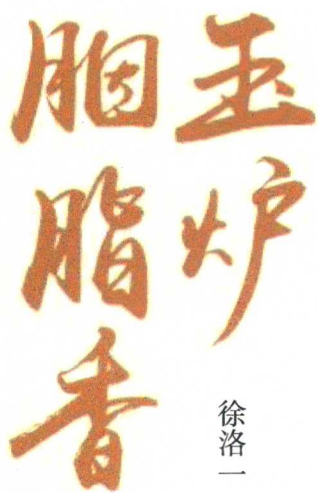 玉炉
胭脂香
徐洛一